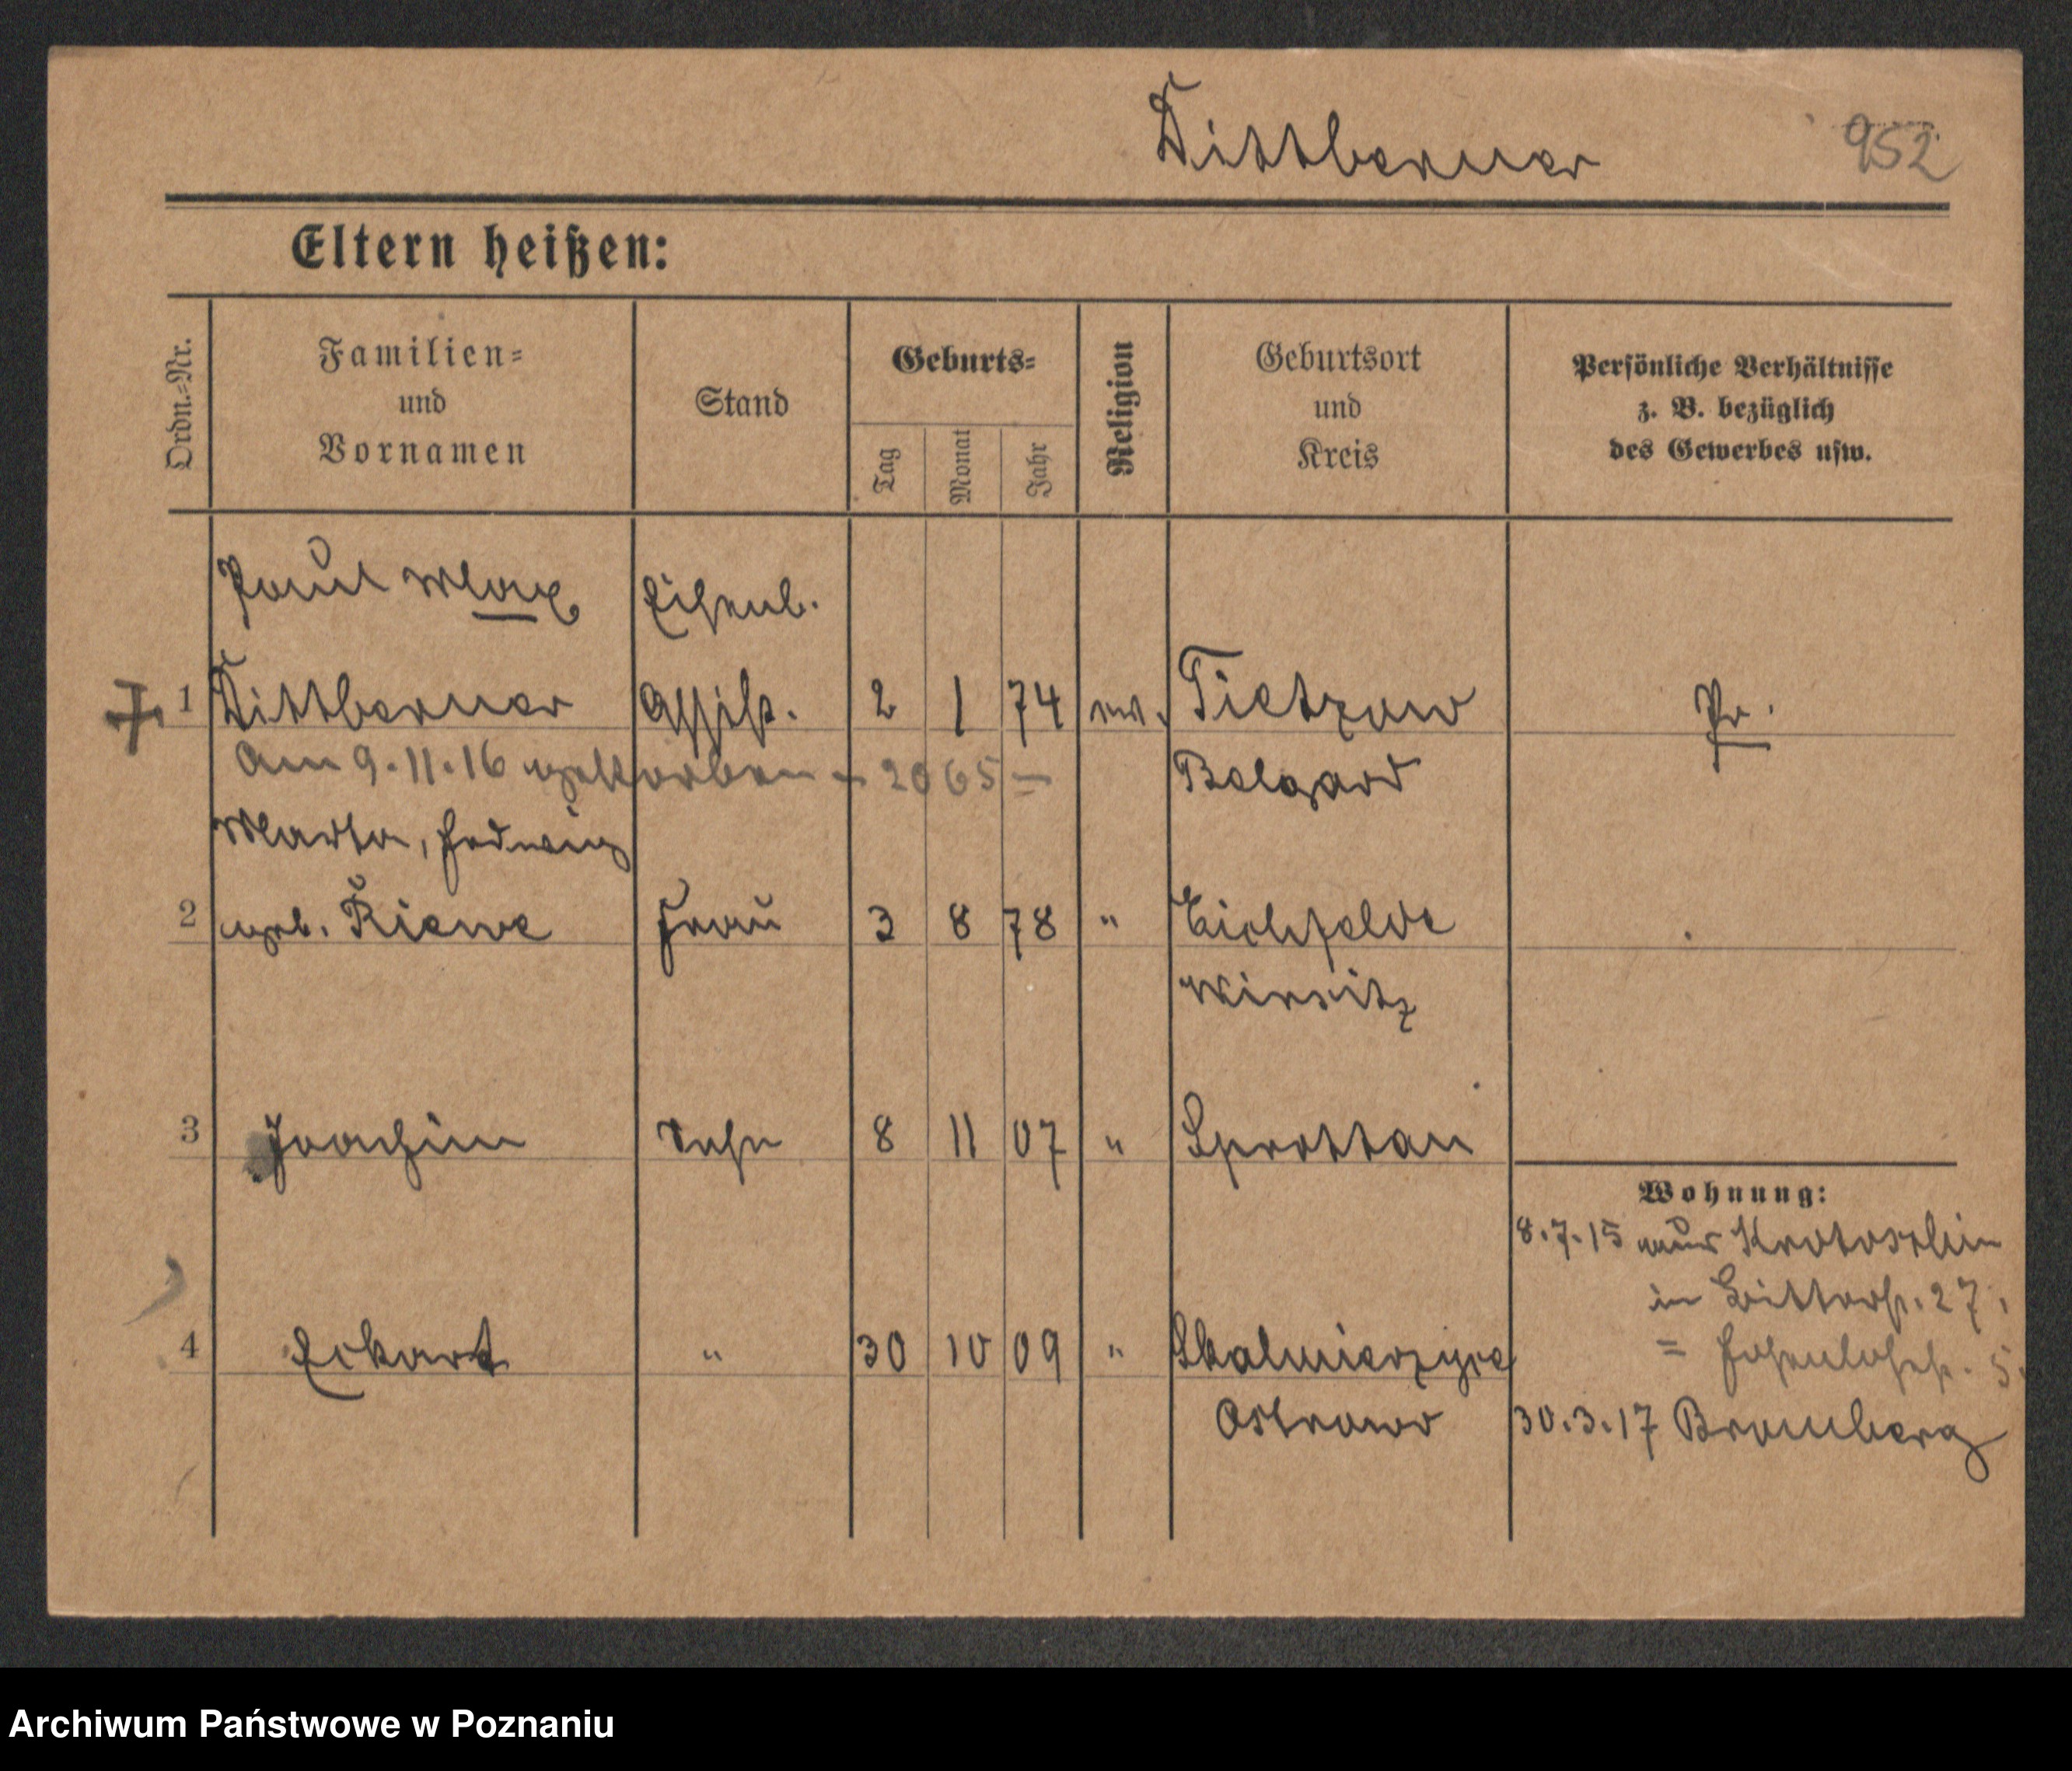 Dittberner 952
Eltern heißen:
Ordn.-Nr.
Familien-
und
Vornamen
Stand
Geburts-
Tag
Monat
Jahr
Religion
Geburtsort
und
Kreis
Persönliche Verhältnisse
z. B. bezüglich
des Gewerbes usw.
Paul Max Eisenb.
1 Dittberner Assist. 2 1 74 ev. Tietzow Pr.
Am 9.11.16 gestorben - 2065 - Belgard
Martha, Hedwig
2 geb. Riewe Frau 3 8 78 " Eichfelde
Wirsitz
3 Joachim Sohn 8 11 07 " Sprottau
Wohnung:
8.7.15 aus Krotoschin
in Bitterstr. 27,
4 Eckart " 30 10 09 " Skalmierzyce = Hohenlohestr. 5.
Ostrowo 30.3.17 Bromberg
Archiwum Państwowe w Poznaniu